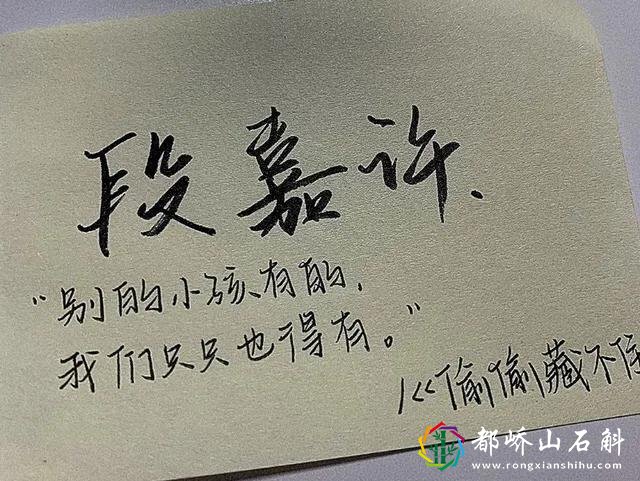 段嘉许.
"别的小孩有的,
我们只只也得有。"
/《偷偷藏不住
都峤山石斛
www.rongxianshihu.com